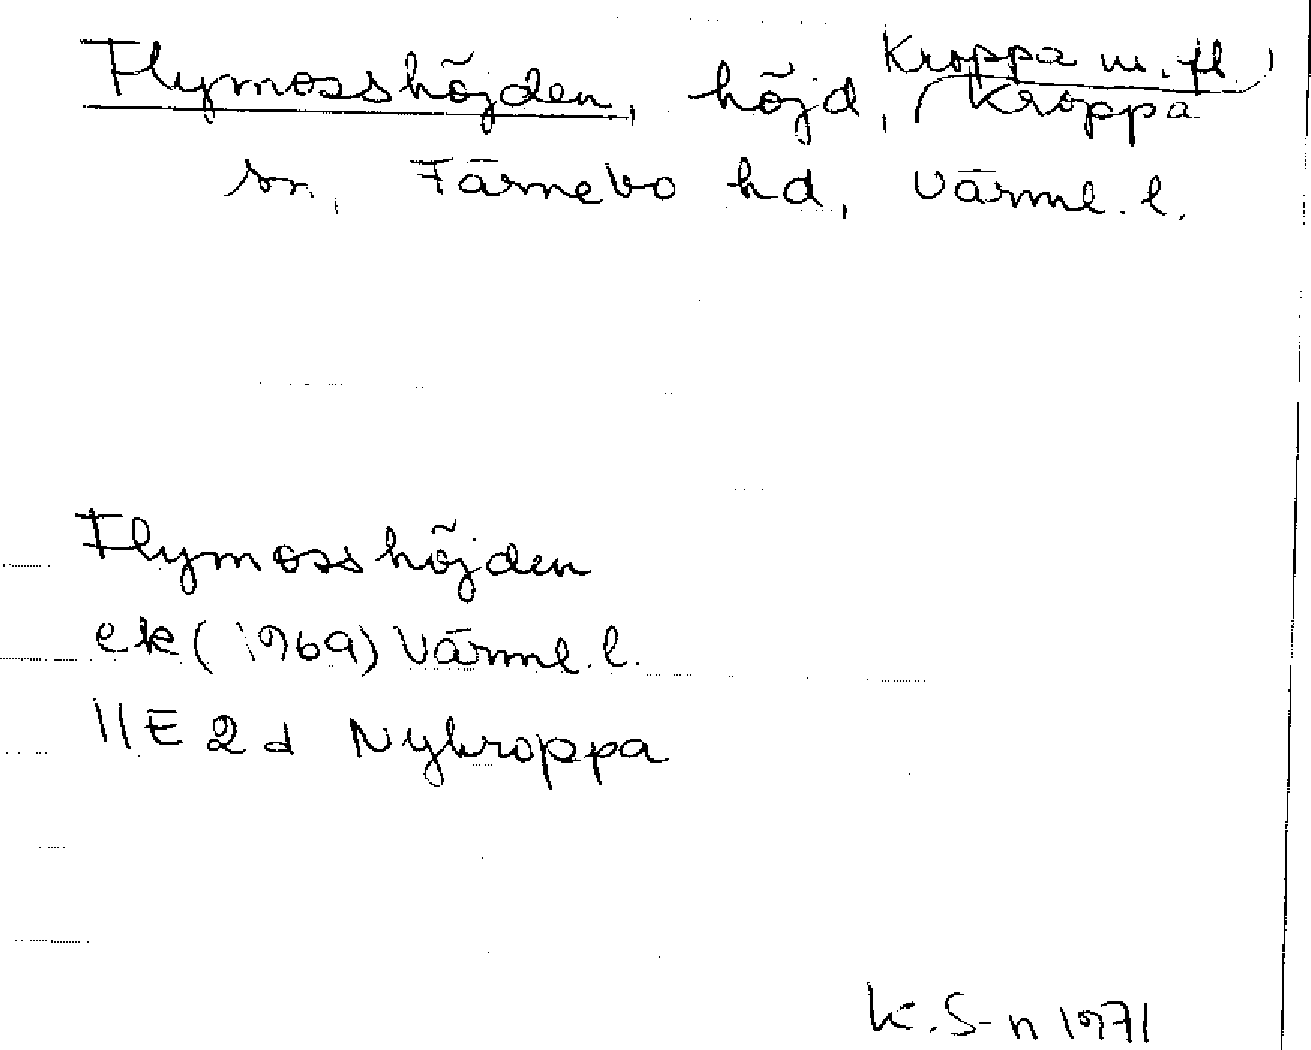 Flymosshöjden, höjd, Kroppa m. fl.
Kroppa
sn, Färnebo hd, Värml. l.
Flymosshöjden
ek (1969) Värml. l.
11E 2d Nykroppa
K. S-n 1971